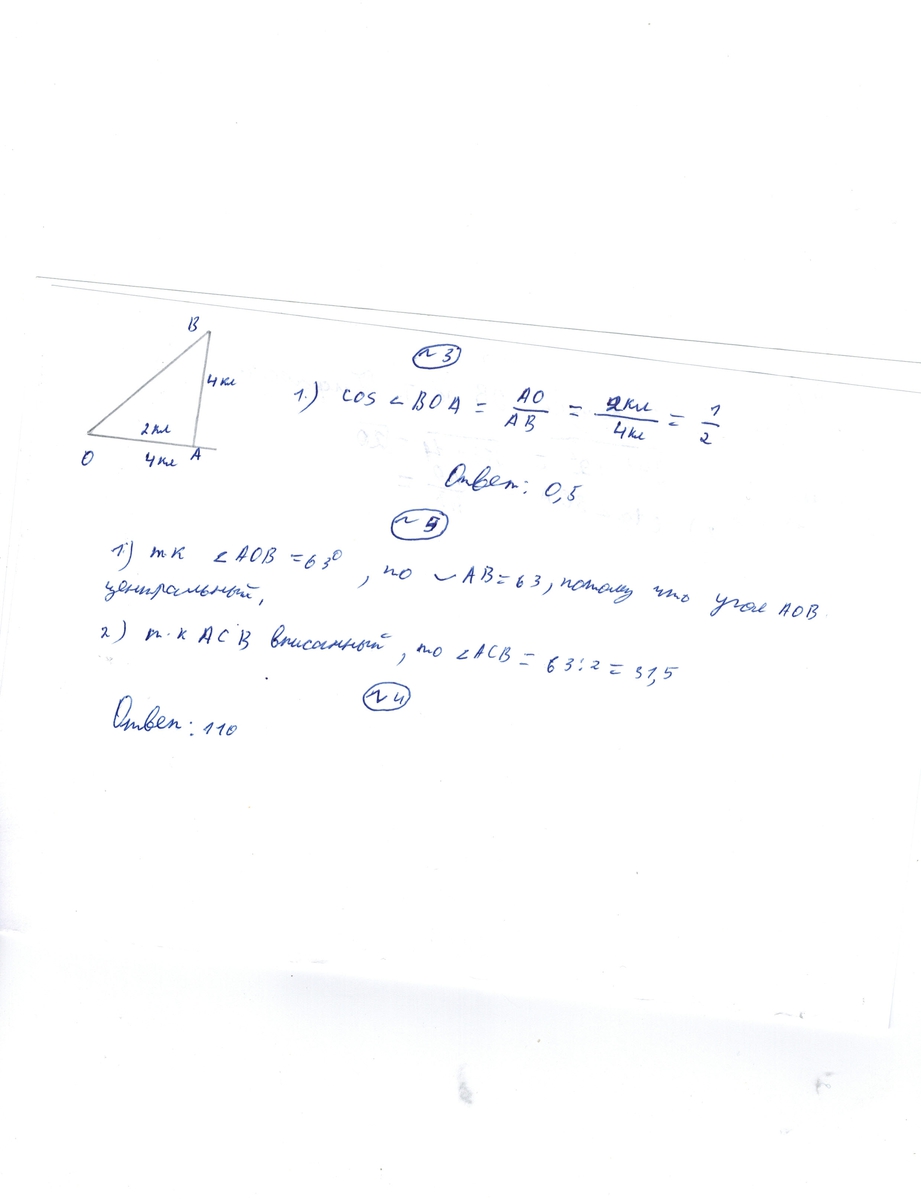 B
4кл
2кл
O
4кл A
~3
1.) cos ∠BOA = AO/AB = 2кл/4кл = 1/2
Ответ: 0,5
~5
1.) т к ∠AOB = 63°, то ◡AB = 63, потому что угол AOB
центральный,
2) т.к ACB вписанный, то ∠ACB = 63:2 = 31,5
~4
Ответ: 110